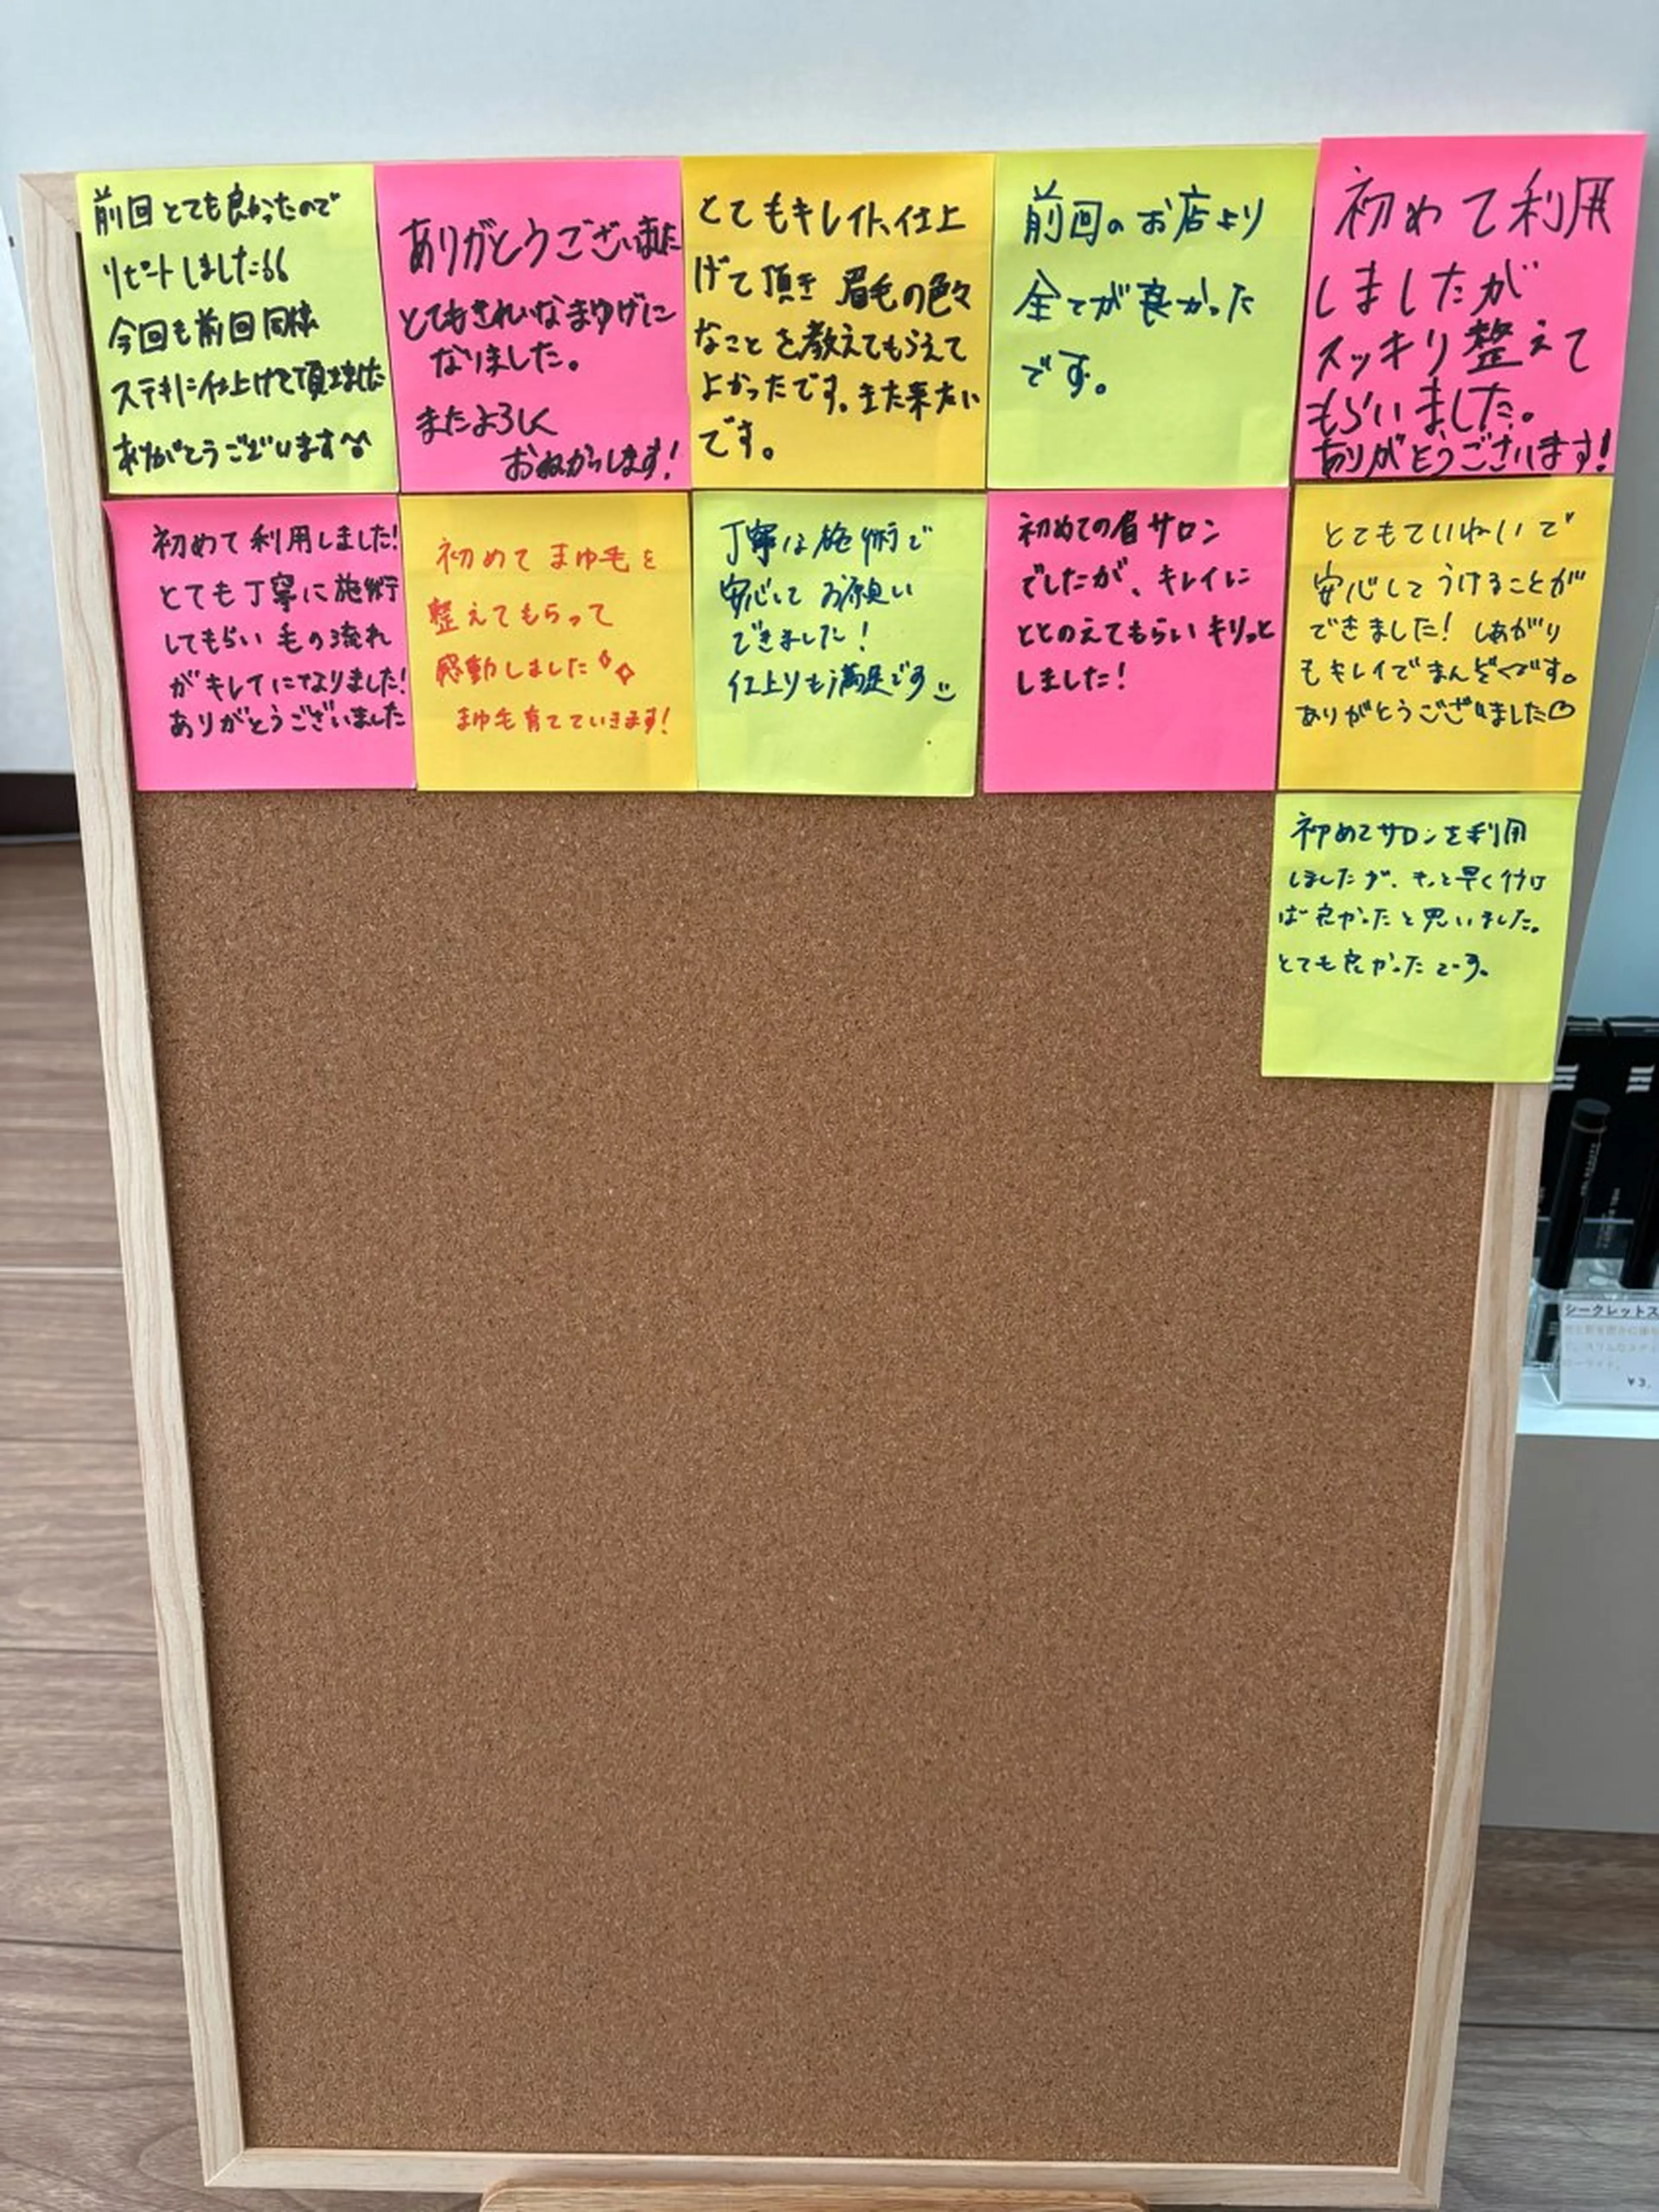 前回とても良かったので
リピートしました
今回も前回同様
ステキに仕上げて頂きました
ありがとうございます
ありがとうございました
とてもきれいなまゆげに
なりました。
またよろしく
おねがいします!
とてもキレイに仕上
げて頂き 眉毛の色々
なことを教えてもらえて
よかったです。また来たい
です。
前回のお店より
全てが良かった
です。
初めて利用
しましたが
スッキリ整えて
もらいました。
ありがとうございます!
初めて利用しました!
とても丁寧に施術
してもらい毛の流れ
がキレイになりました!
ありがとうございました
初めてまゆ毛を
整えてもらって
感動しました
まゆ毛育てていきます!
丁寧な施術で
安心してお願い
できました!
仕上りも満足です
初めての眉サロン
でしたが、キレイに
ととのえてもらいキリっと
しました!
とてもていねいで
安心してうけることが
できました! しあがり
もキレイでまんぞくです。
ありがとうございました♡
初めてサロンを利用
しましたが、もっと早く行け
ば良かったと思いました。
とても良かったです。
シークレットス
¥3,